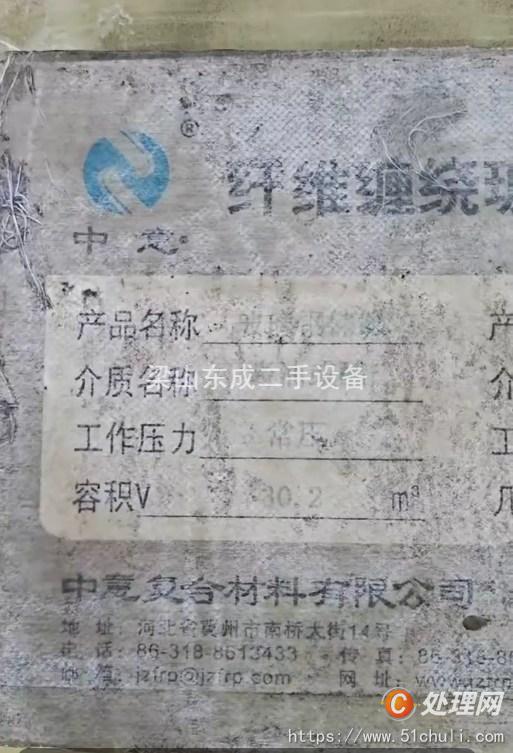 ®
纤维缠绕玻
中意
产品名称 玻璃钢储罐 产
介质名称 介
梁山东成二手设备
工作压力 常压 工
容积V 30.2 m³ 几
中意复合材料有限公司
地 址: 河北省冀州市南桥大街14号
电 话: 86-318-8613433 传 真: 86-318-86
邮 箱: jzfrp@jzfrp.com 网 址: www.jzfrp
C 处理网
https://www.51chuli.com